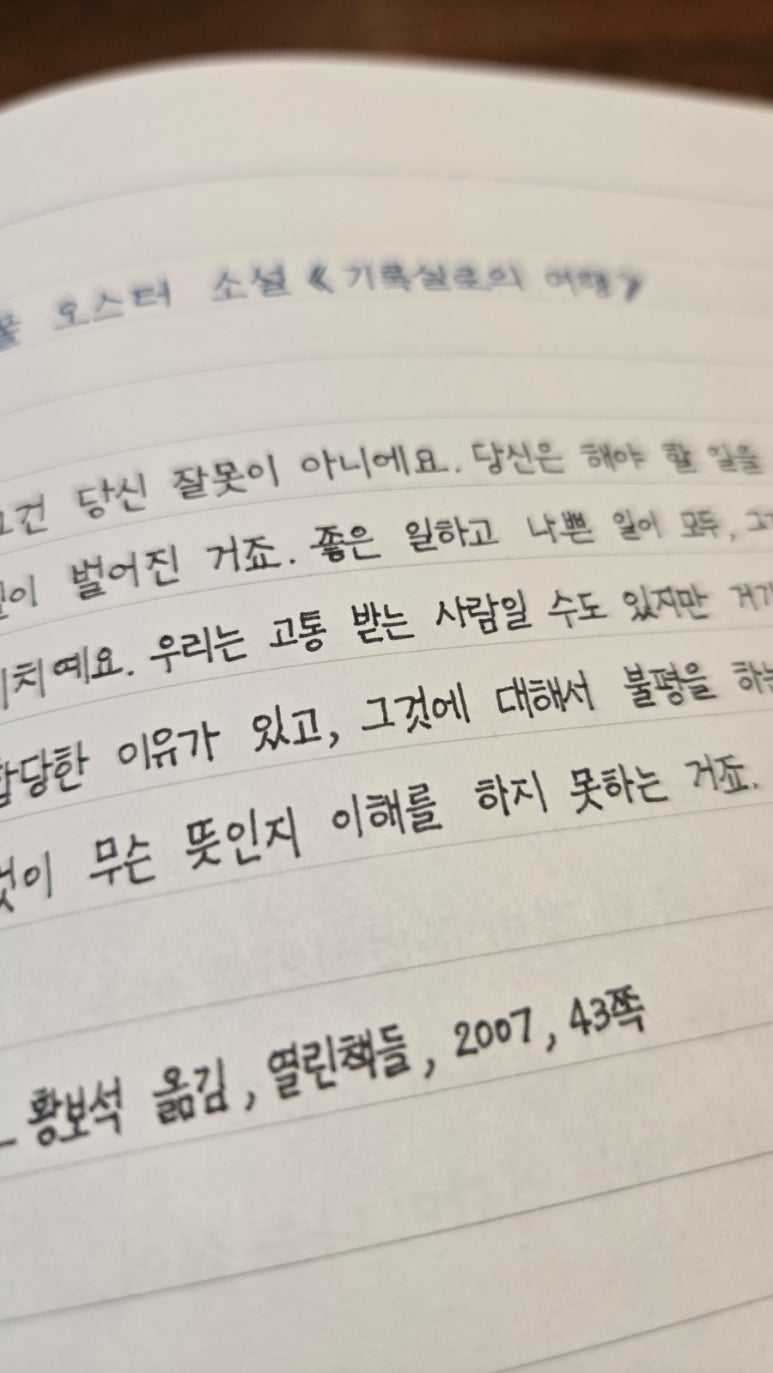 오스터 소설 《기록실로의 여행》
당신 잘못이 아니에요. 당신은 해야 할 일을
벌어진 거죠. 좋은 일하고 나쁜 일이 모두,
우리는 고통 받는 사람일 수도 있지만
합당한 이유가 있고, 그것에 대해서 불평을
무슨 뜻인지 이해를 하지 못하는 거죠.
_ 황보석 옮김, 열린책들, 2007, 43쪽